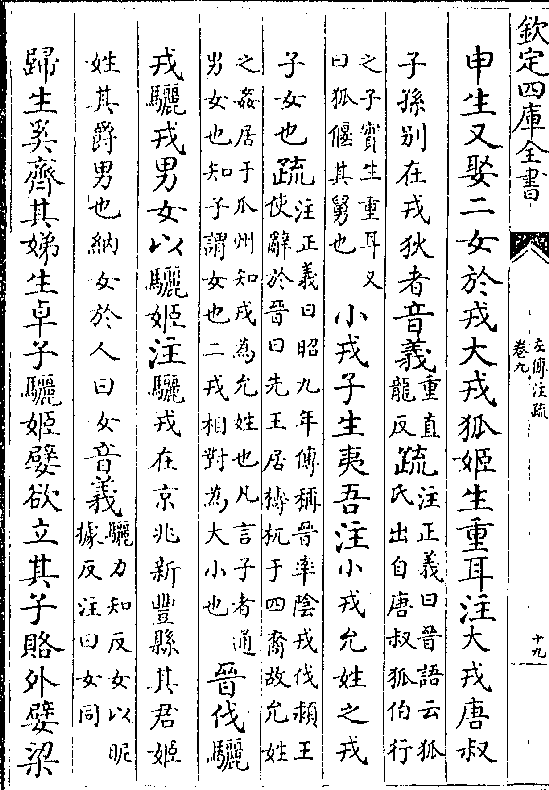 欽定四庫全書
左傳注疏
卷九
十九
申生又娶二女於戎大戎狐姬生重耳注大戎唐叔
子孫别在戎狄者音義重直
龍反疏注正義曰晉語云狐
氏出自唐叔狐伯行
之子實生重耳又
曰狐偃其舅也小戎子生夷吾注小戎允姓之戎
子女也疏注正義曰昭九年傳稱晉率隂戎伐潁王
使辭於晉曰先王居檮杌于四裔故允姓
之姦居于瓜州知戎為允姓也凡言子者通
男女也知子謂女也二戎相對為大小也晉伐驪
戎驪戎男女以驪姬注驪戎在京兆新豐縣其君姬
姓其爵男也納女於人曰女音義驪力知反女以昵
據反注曰女同
歸生奚齊其娣生卓子驪姬嬖欲立其子賂外嬖梁